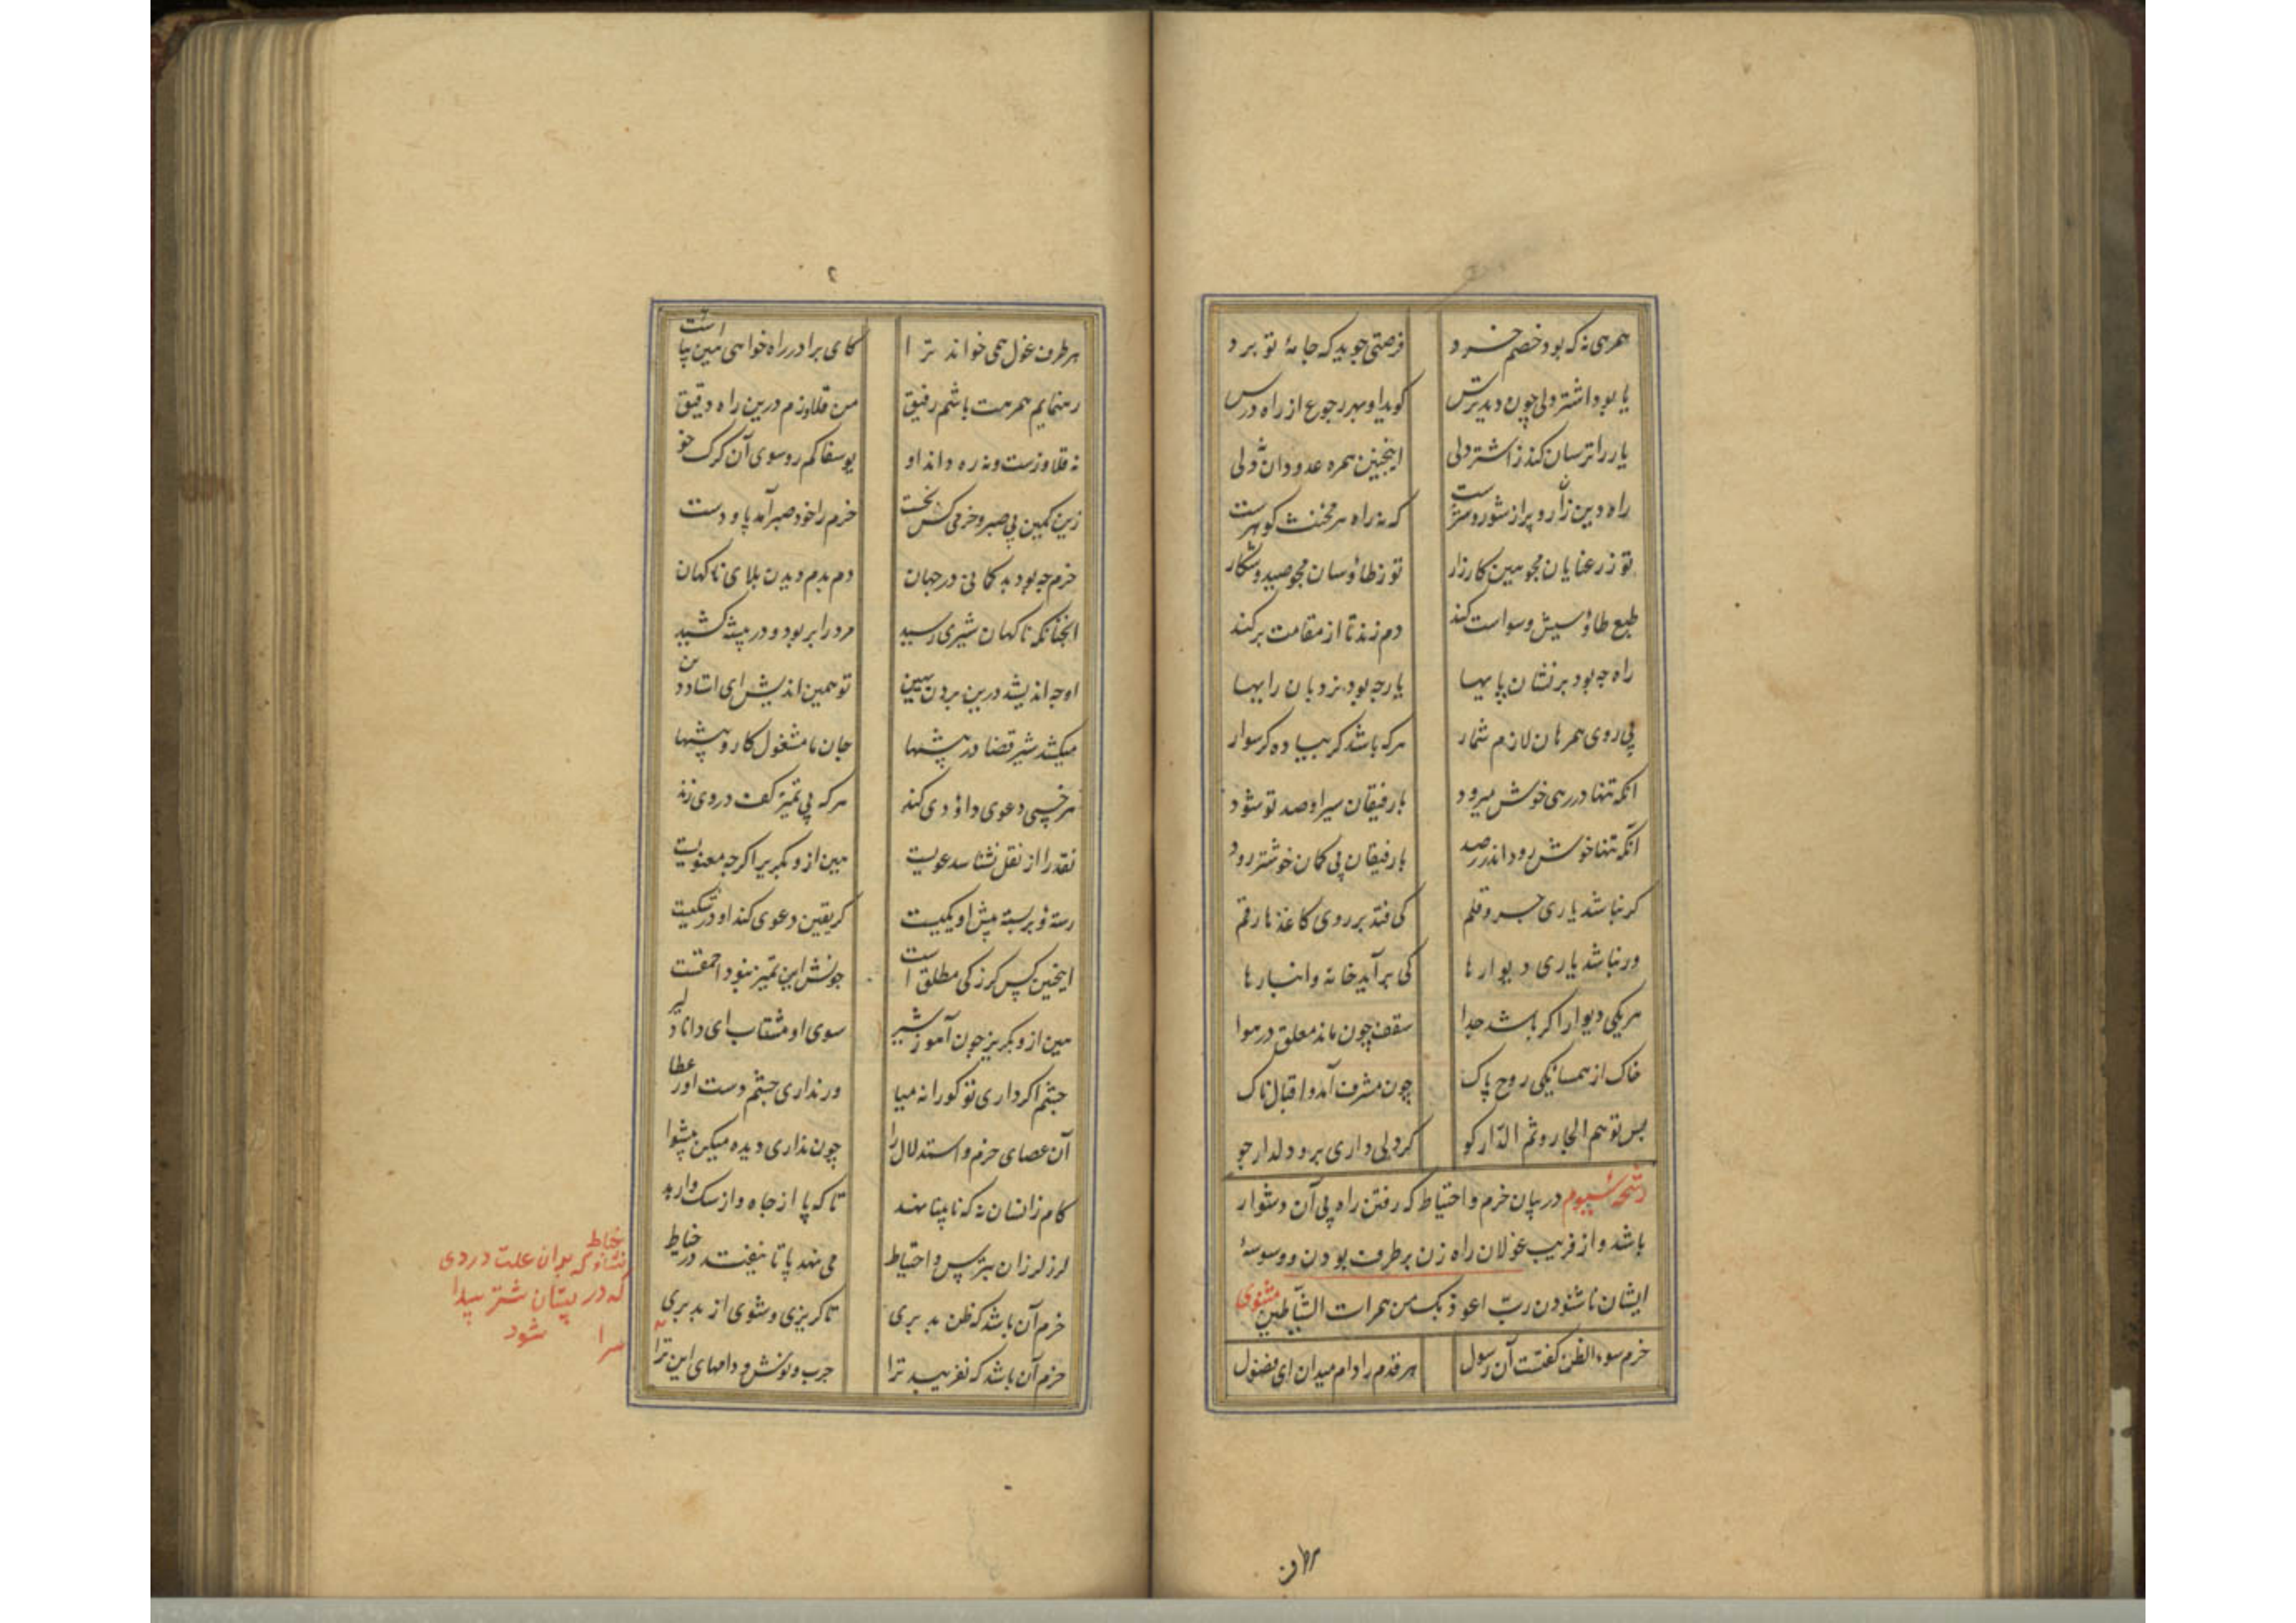 همرهی نه که بود خصم خرد فرصتی جوید که جامهٔ تو برد
یا بود اشتر دلی چون دید ترس گوید او بهر رجوع از راه درس
یار را ترسان کند ز اشتر دلی اینچنین همره عدو دان نه ولی
راه دین زان رو پر از شور و شرست که نه راه هر مخنث گوهرست
تو ز رعنایان مجو هین کارزار تو ز طاؤسان مجو صید و شکار
طبع طاؤسیش وسواست کند دم زند تا از مقامت برکند
راه چه بود پر نشان پایها یار چه بود نردبان رایها
پی روی همرهان لازم شمار هرکه باشد گر پیاده گر سوار
آنکه تنها در رهی خوش میرود با رفیقان سیر او صد تو شود
آنکه تنها خوش رود اندر رصد با رفیقان بی گمان خوشتر رود
گر نباشد یاری حبر و قلم کی فتد بر روی کاغذها رقم
ور نباشد یاری دیوارها کی برآید خانه و انبارها
هر یکی دیوار اگر باشد جدا سقف چون ماند معلق در هوا
خاک از همسایگی روح پاک چون مشرف آمد و اقبال ناک
پس تو هم الجار و ثم الدّار گو گر دلی داری برو دلدار جو
رشحهٔ سیوم در بیان حزم و احتیاط که رفتن راه بی آن دشوار
باشد و از فریب غولان راه زن بر طرف بودن و وسوسهٔ
ایشان ناشنودن ربّ اعوذ بک من همزات الشیاطین مثنوی
حزم سوء الظن گفتست آن رسول هر قدم را دام میدان ای فضول
هرطرف
۲
هر طرف غول همی خواند ترا کای برادر راه خواهی هین بیا است
رهنمایم همرهت باشم رفیق من قلاوزم درین راه دقیق
نه قلاوزست و نه ره داند او یوسفا کم رو سوی آن گرگ خو
زین کمین بی صبر و حزمی کس نجست حزم را خود صبر آمد پا و دست
حزم چه بود بد گمانی در جهان دم بدم دیدن بلای ناگهان
آنچنانکه ناگهان شیری رسید مرد را بربود و در بیشه کشید
او چه اندیشد درین بردن ببین تو همین اندیش ای استاد دین
میکشد شیر قضا در بیشها جان ما مشغول کار و پیشها
هر خسی دعوی داؤدی کند هر که بی تمیز کف در وی زند
نقد را از نقل نشناسد غویست هین ازو بگریز اگرچه معنویست
رسته و بر بسته پیش او یکیست گر یقین دعوی کند او در شکیست
اینچنین کس گر زکی مطلق است چونش این تمیز نبود احمقست
هین ازو بگریز چون آهو ز شیر سوی او مشتاب ای دانا دلیر
چشم اگر داری تو کورانه میا ور نداری چشم دست آور عصا
آن عصای حزم و استدلال را چون نداری دیده میکن پیشوا
گام زانسان نه که نابینا نهد تا که پا از چاه و از سگ وارهد
لرز لرزان بترس و احتیاط می نهد پا تا نیفتد در خباط
حزم آن باشد که ظن بد بری تا گریزی و شوی از بد بری
حزم آن باشد که نفریبد ترا چرب و نوش و دامهای این سرا
خباط
علت دردی
که در پستان شتر پیدا
شود
سرا